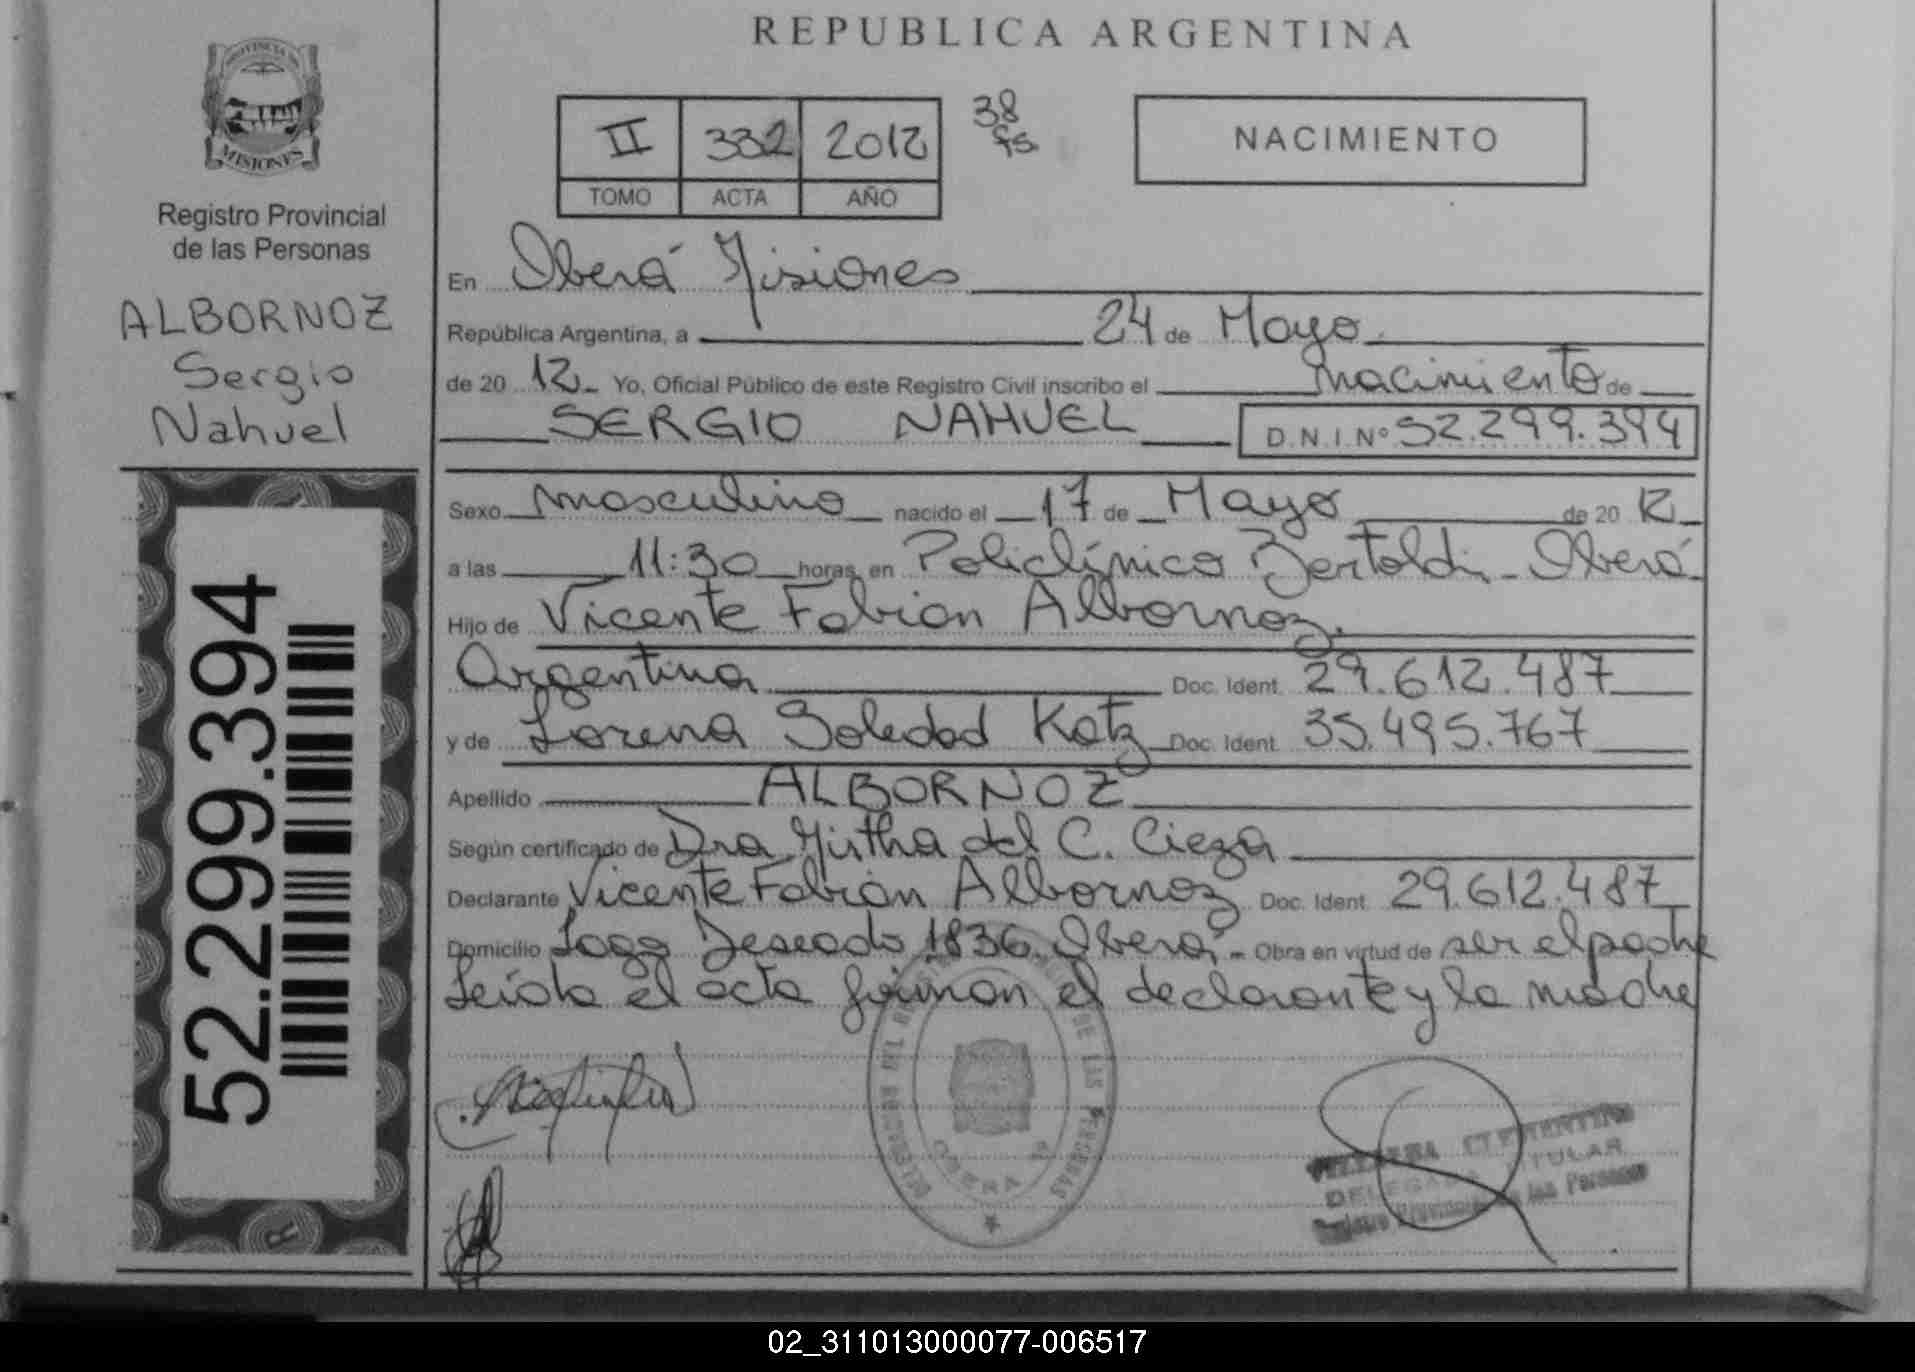 REPUBLICA ARGENTINA
PROVINCIA DE
MISIONES
Registro Provincial
de las Personas
ALBORNOZ
Sergio
Nahuel
52.299.394
II 332 2012
TOMO ACTA AÑO
38
fs
NACIMIENTO
En Oberá Misiones
República Argentina, a 24 de Mayo
de 20 12 Yo, Oficial Público de este Registro Civil inscribo el nacimiento de
SERGIO NAHUEL D.N.I. Nº 52.299.394
Sexo masculino nacido el 17 de Mayo de 20 12
a las 11:30 horas, en Policlínico Bertoldi - Oberá
Hijo de Vicente Fabian Albornoz.
Argentina Doc. Ident. 29.612.487
y de Lorena Soledad Katz Doc. Ident. 35.495.767
Apellido ALBORNOZ
Según certificado de Dra Mirtha del C. Cieza
Declarante Vicente Fabián Albornoz Doc. Ident. 29.612.487
Domicilio Lago Deseado 1836 Oberá - Obra en virtud de ser el padre
Leída el acta firman el declarante y la madre
DE LAS PERSONAS
OBERA
CLEMENTINA
DELEGADA TITULAR
de las Personas
02_311013000077-006517